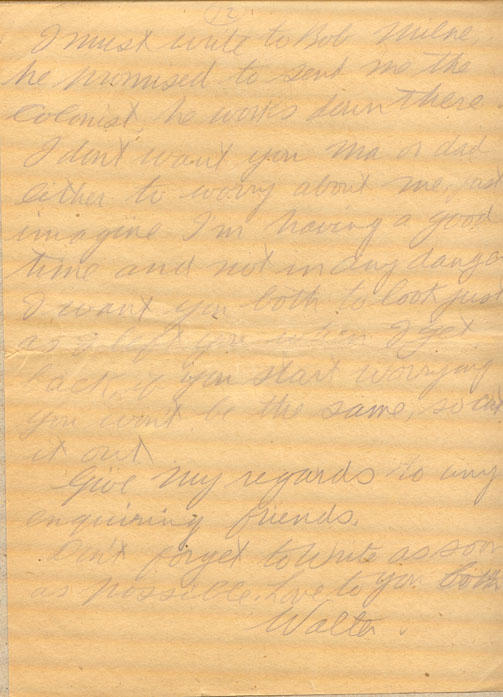 (12)
I must write to Bob Milne,
he promised to send me the
Colonist, he works down there
I don't want you Ma or dad
either to worry about me, just
imagine I'm having a good
time and not in any danger
I want you both to look just
as I left you when I get
back, if you start worrying
you won't be the same, so cut
it out
Give my regards to any
enquiring friends.
Don't forget to write as soon
as possible. Love to you both
Walter.